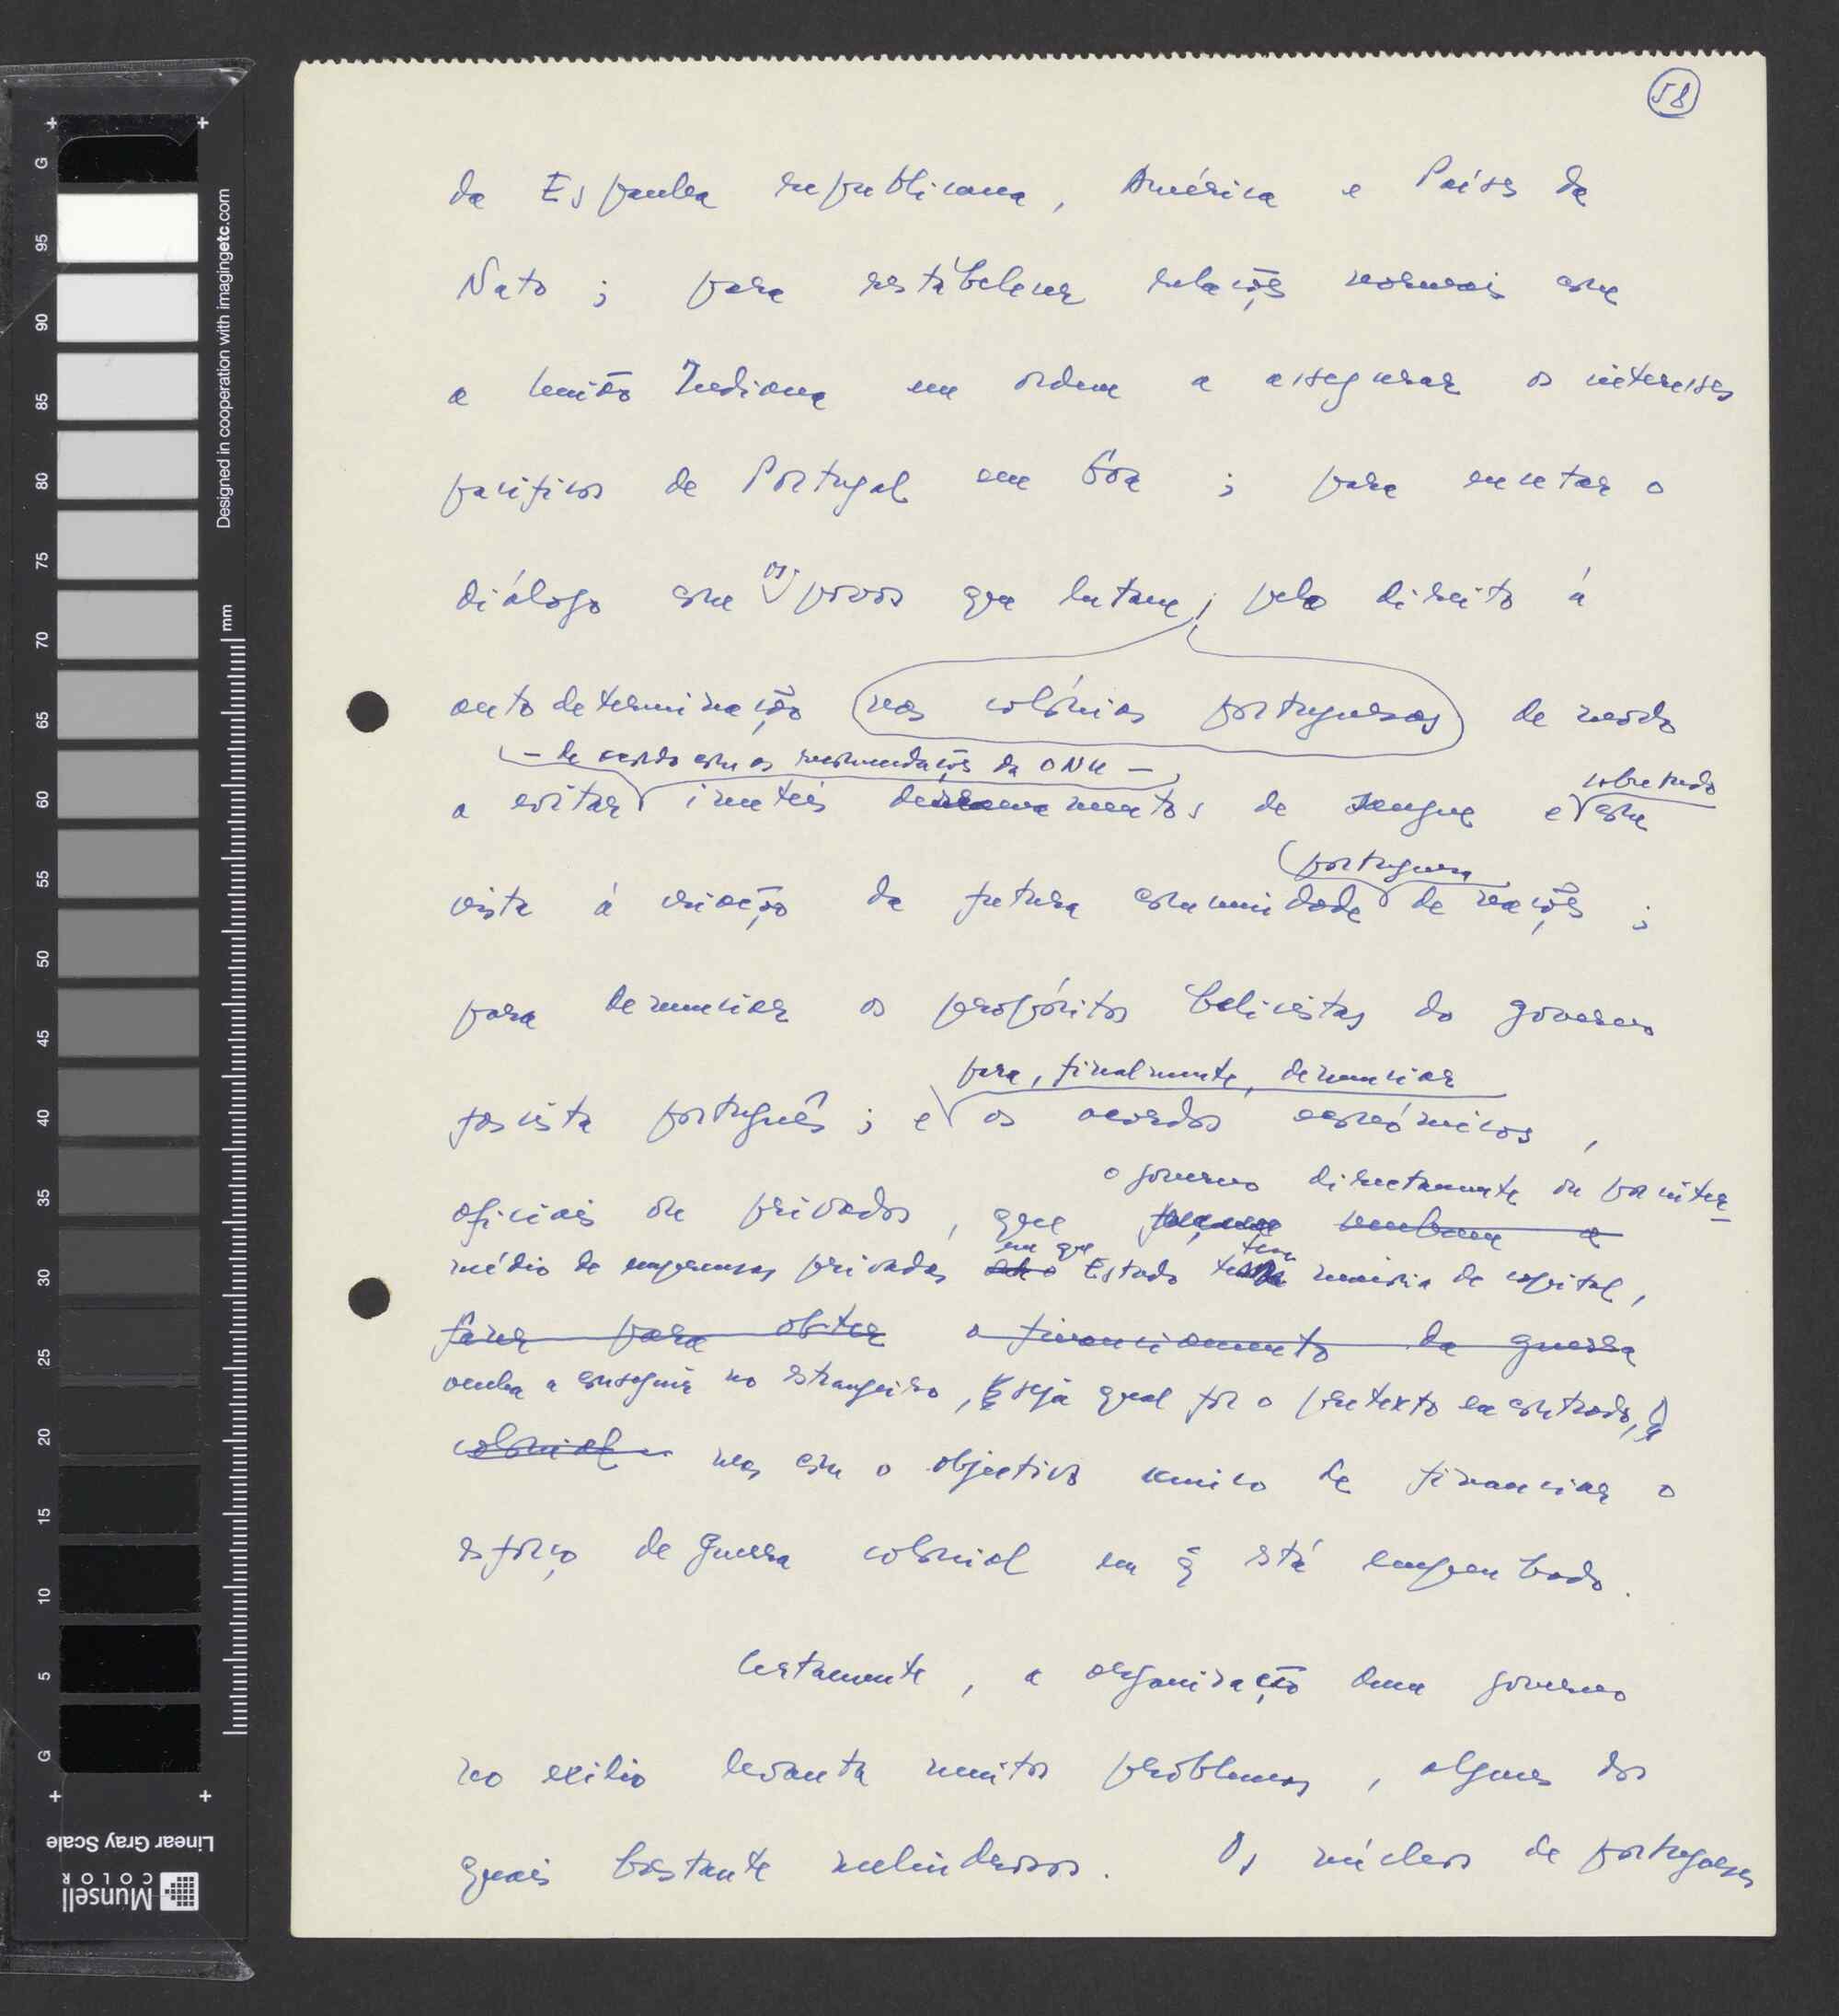 58
da Espanha republicana, América e Países da
Nato; para restabelecer relações normais com
a União Indiana em ordem a assegurar os interesses
pacíficos de Portugal em Goa; para encetar o
diálogo com os povos que lutam, pelo direito à
autodeterminação nas colónias portuguesas de modo
– de acordo com as recomendações da ONU –
sobretudo
a evitar inuteis derramamentos de sangue e com
portuguesa
vista à criação da futura comunidade de nações;
para denunciar os propósitos belicistas do governo
para, finalmente, denunciar
fascista português; e os acordos económicos,
o governo directamente ou por inter-
oficiais ou privados, que venham a
em que tem
médio de empresas privadas o Estado maioria de capital,
fazer para obter o financiamento da guerra
venha a conseguir no estrangeiro, seja qual for o pretexto encontrado,
colonial mas com o objectivo unico de financiar o
esforço de guerra colonial em q̃ está empenhado.
Certamente, a organização dum governo
no exilio levanta muitos problemas, alguns dos
quais bastante melindrosos. Os núcleos de portugueses
G
95
90
85
80
75
70
65
60
55
50
45
40
35
30
25
20
15
10
5
G
mm
Designed in cooperation with imagingetc.com
Linear Gray Scale
Munsell
COLOR